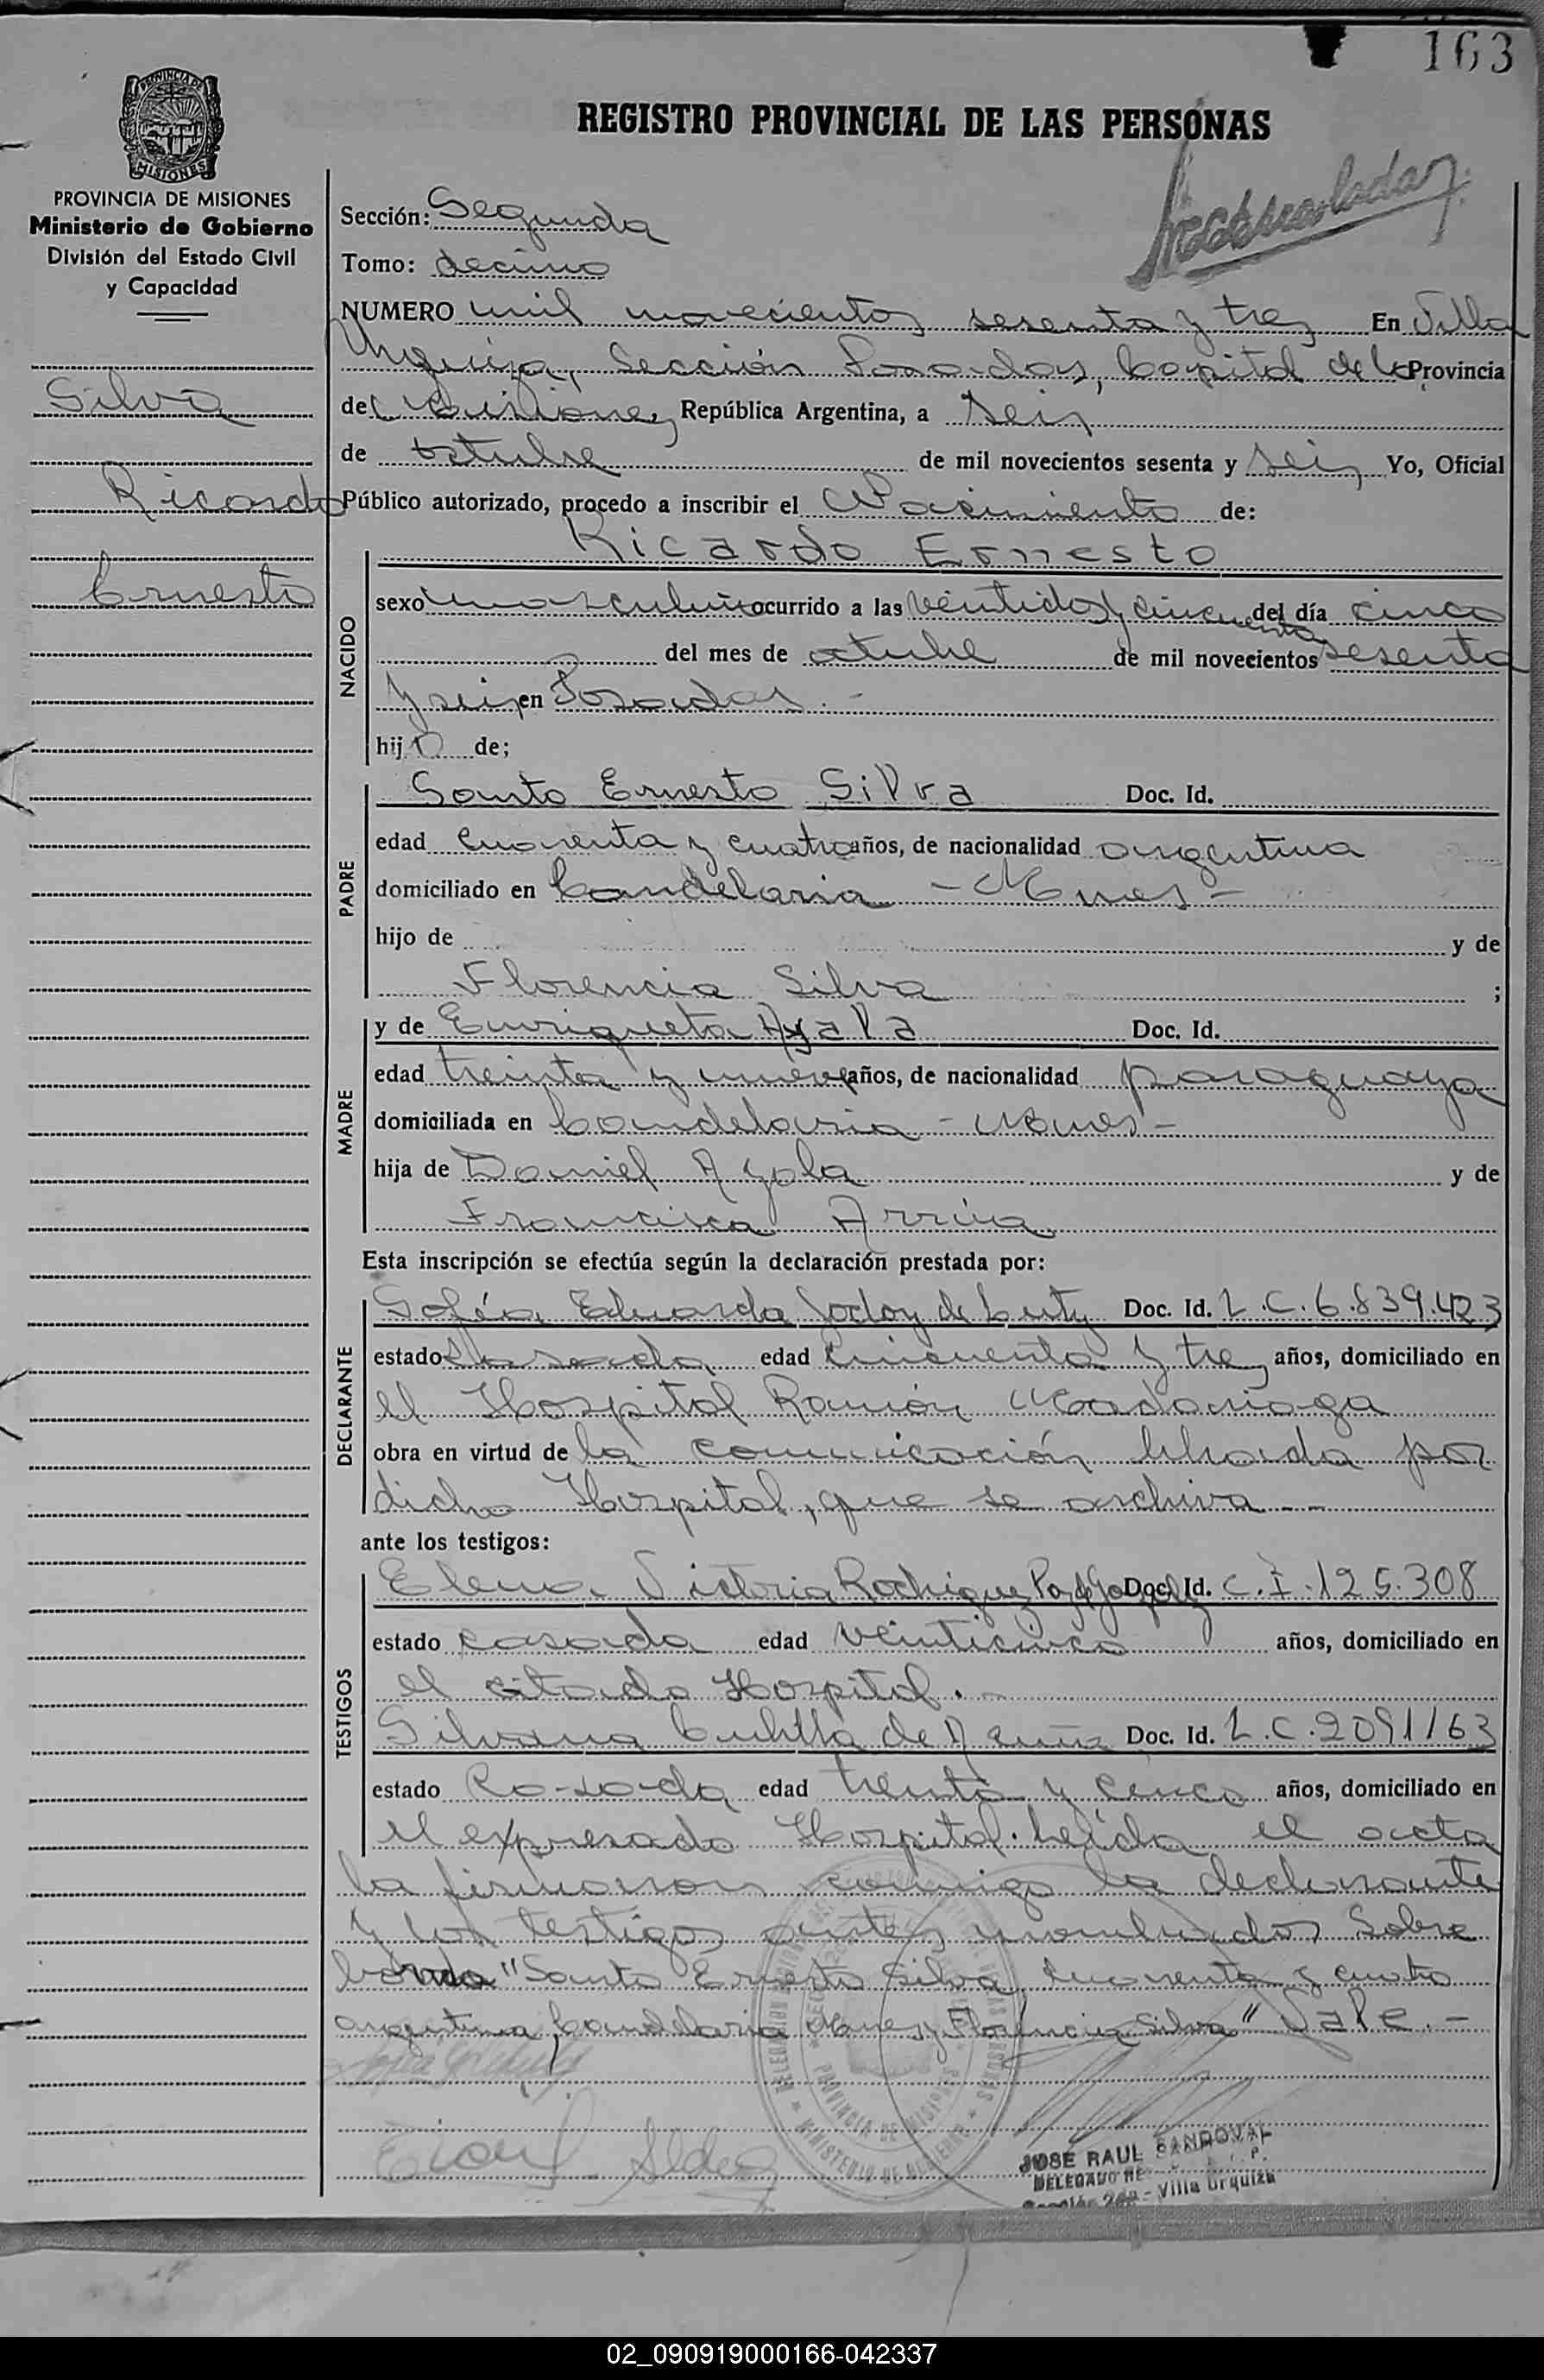 163
REGISTRO PROVINCIAL DE LAS PERSONAS
PROVINCIA DE MISIONES
Ministerio de Gobierno
División del Estado Civil
y Capacidad
Silva
Ricardo
Ernesto
Sección: Segunda
Tomo: decimo
NUMERO mil novecientos sesenta y tres En Villa
Urquiza, Sección Posadas, Capital de la Provincia
de Misiones, República Argentina, a seis
de octubre de mil novecientos sesenta y seis Yo, Oficial
Público autorizado, procedo a inscribir el Nacimiento de:
NACIDO
Ricardo Ernesto
sexo masculino ocurrido a las veintidos y cincuenta del día cinco
del mes de octubre de mil novecientos sesenta
y seis en Posadas.-
hijo de;
PADRE
Santo Ernesto Silva Doc. Id.
edad cuarenta y cuatro años, de nacionalidad argentina
domiciliado en Candelaria - Mnes -
hijo de y de
Florencia Silva ;
MADRE
y de Enriqueta Ayala Doc. Id.
edad treinta y nueve años, de nacionalidad paraguaya
domiciliada en Candelaria - Mnes -
hija de Daniel Ayala y de
Francisca Arrúa
Esta inscripción se efectúa según la declaración prestada por:
DECLARANTE
Sofía Eduarda Godoy de Doc. Id. L.C. 6.839.423
estado Casada edad cincuenta y tres años, domiciliado en
el Hospital Ramón Madariaga
obra en virtud de la comunicación librada por
dicho Hospital, que se archiva - -
ante los testigos:
TESTIGOS
Elena Victoria Rodriguez Doc. Id. C.I. 125.308
estado casada edad veinticinco años, domiciliado en
el citado Hospital.-
Silvana de Doc. Id. L.C. 2091163
estado Casada edad treinta y cinco años, domiciliado en
el expresado Hospital. Leída el acta
la firmaron conmigo la declarante
y los testigos antes nombrados Sobre
borrado "Santo Ernesto Silva, cuarenta y cuatro
argentina, Candelaria Mnes y Florencia Silva" Vale.-
PROVINCIA DE MISIONES
MINISTERIO DE GOBIERNO
JOSE RAUL SANDOVAL
DELEGADO
Sección 2da - Villa Urquiza
02_090919000166-042337